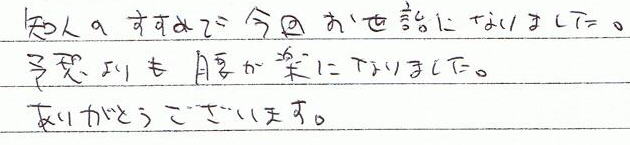 知人のすすめで今回お世話になりました。
予想よりも腰が楽になりました。
ありがとうございます。